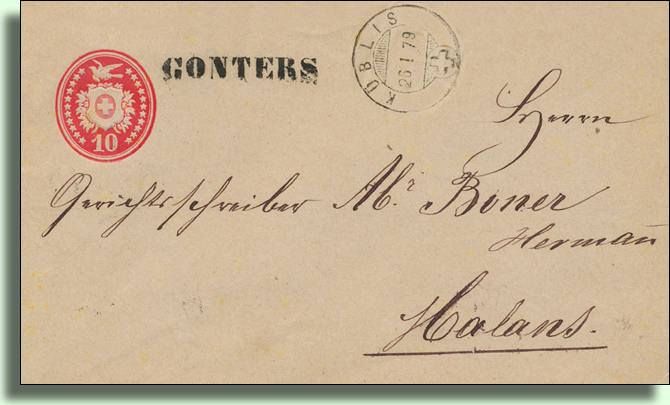 KÜBLIS
26 I 79
GONTERS
10
Herrn
Gerichtsschreiber Abr. Boner
Herman̄
Malans.